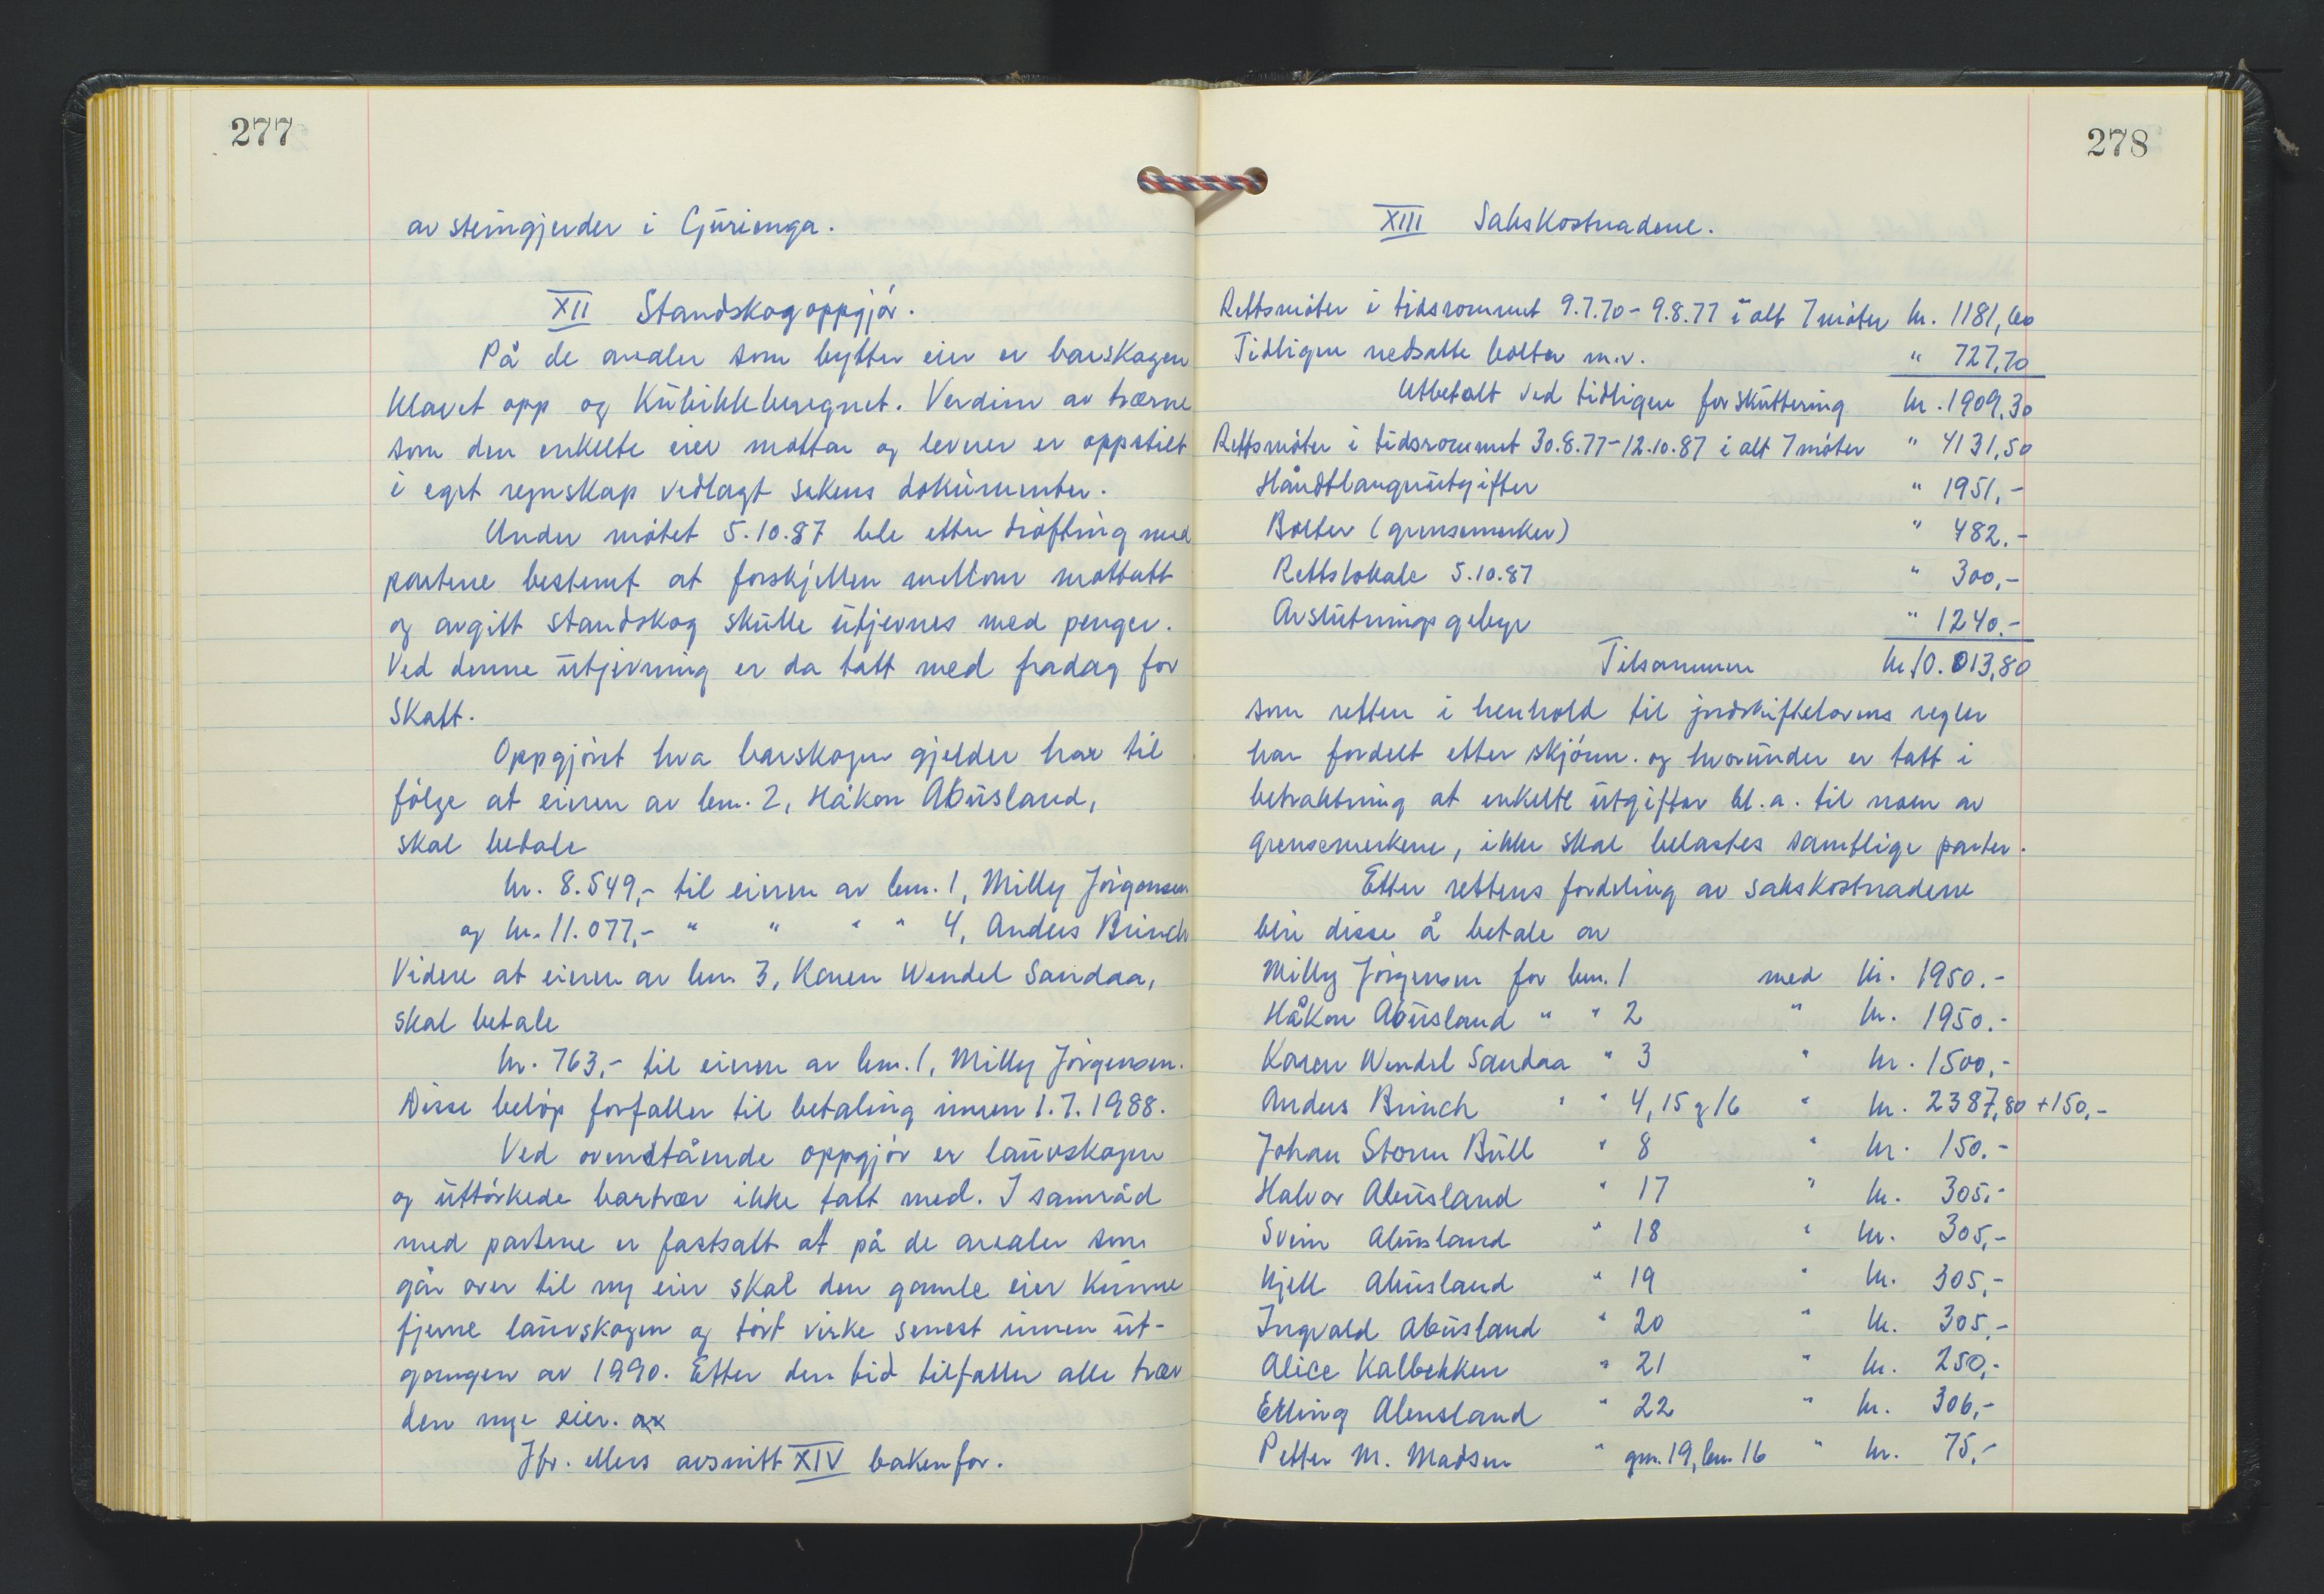 277
av steingjerder i Gurienga.
XII Standskogoppgjør.
På de arealer som bytter eier er barskogen
klavet opp og kubikkberegnet. Verdien av trærne
som den enkelte eier mottar og leverer er oppstilt
i eget regnskap vedlagt sakens dokumenter.
Under møtet 5.10.87 ble etter drøfting med
partene bestemt at forskjellen mellom mottatt
og avgitt standskog skulle utjevnes med penger.
Ved denne utjevning er da tatt med fradag for
skatt.
Oppgjøret hva barskogen gjelder har til
følge at eieren av bnr. 2, Håkon Abusland,
skal betale
kr. 8.549,- til eieren av bnr. 1, Milly Jørgensen
og kr. 11.077,- " " " " 4, Anders Brinch
Videre at eieren av bnr 3, Karen Wendel Sandaa,
skal betale
kr. 763,- til eieren av bnr. 1, Milly Jørgensen.
Disse beløp forfaller til betaling innen 1.7.1988.
Ved ovenstående oppgjør er lauvskogen
og uttørkede bartrær ikke tatt med. I samråd
med partene er fastsatt at på de arealer som
går over til ny eier skal den gamle eier kunne
fjerne lauvskogen og tørt virke senest innen ut-
gangen av 1990. Etter den tid tilfaller alle trær
den nye eier.
Jfr. ellers avsnitt XIV bakenfor.
278
XIII Sakskostnadene.
Rettsmøter i tidsrommet 9.7.70 - 9.8.77 i alt 7 møter kr. 1181,60
Tidligere nedsatte bolter m.v. " 727,70
Utbetalt ved tidligere forskuttering kr. 1909,30
Rettsmøter i tidsrommet 30.8.77-12.10.87 i alt 7 møter " 4131,50
Håndtlangerutgifter " 1951,-
Bolter (grensemerker) " 482.-
Rettslokale 5.10.87 " 300,-
Avslutningsgebyr " 1240.-
Tilsammen kr. 10.013,80
som retten i henhold til jordskiftelovens regler
har fordelt etter skjønn. og hvorunder er tatt i
betraktning at enkelte utgifter bl.a. til noen av
grensemerkene, ikke skal belastes samtlige parter.
Etter rettens fordeling av sakskostnadene
blir disse å betale av
Milly Jørgensen for bnr. 1 med kr. 1950.-
Håkon Abusland " " 2 " kr. 1950.-
Karen Wendel Sandaa " 3 " kr. 1500,-
Anders Brinch " " 4, 15 g 16 " kr. 2387,80 +150,-
Johan Storm Bull " 8 " kr. 150.-
Halvor Abusland " 17 " kr. 305.-
Svein Abusland " 18 " kr. 305,-
Kjell Abusland " 19 " kr. 305,-
Ingvald Abusland " 20 " kr. 305,-
Alice Kalbekken " 21 " kr. 250,-
Erling Abusland " 22 " kr. 306,-
Petter M. Madsen " gnr. 19, bnr. 16 " kr. 75,-